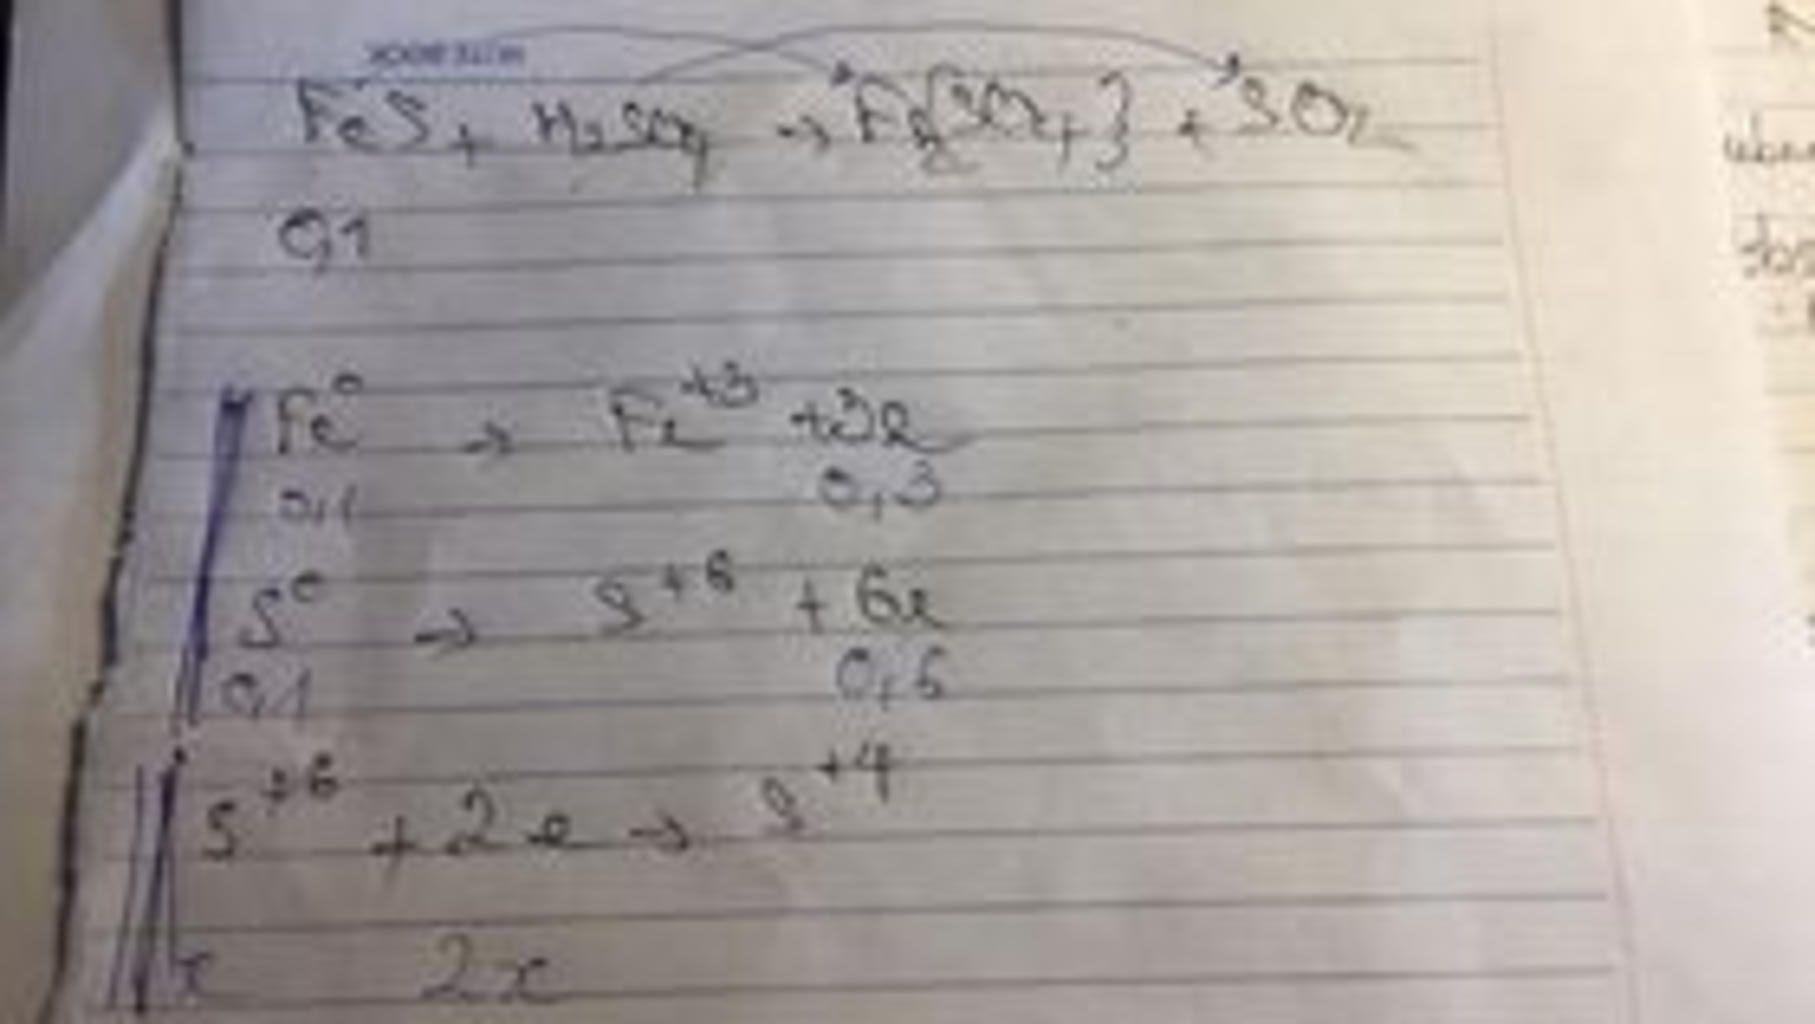 NOTE BOOK
FeS + H2SO4 → Fe2{SO4} + SO2
0,1
Fe⁰ → Fe⁺³ + 3e
0,1 0,3
S⁰ → S⁺⁶ + 6e
0,1 0,6
S⁺⁶ + 2e → S⁺⁴
x 2x